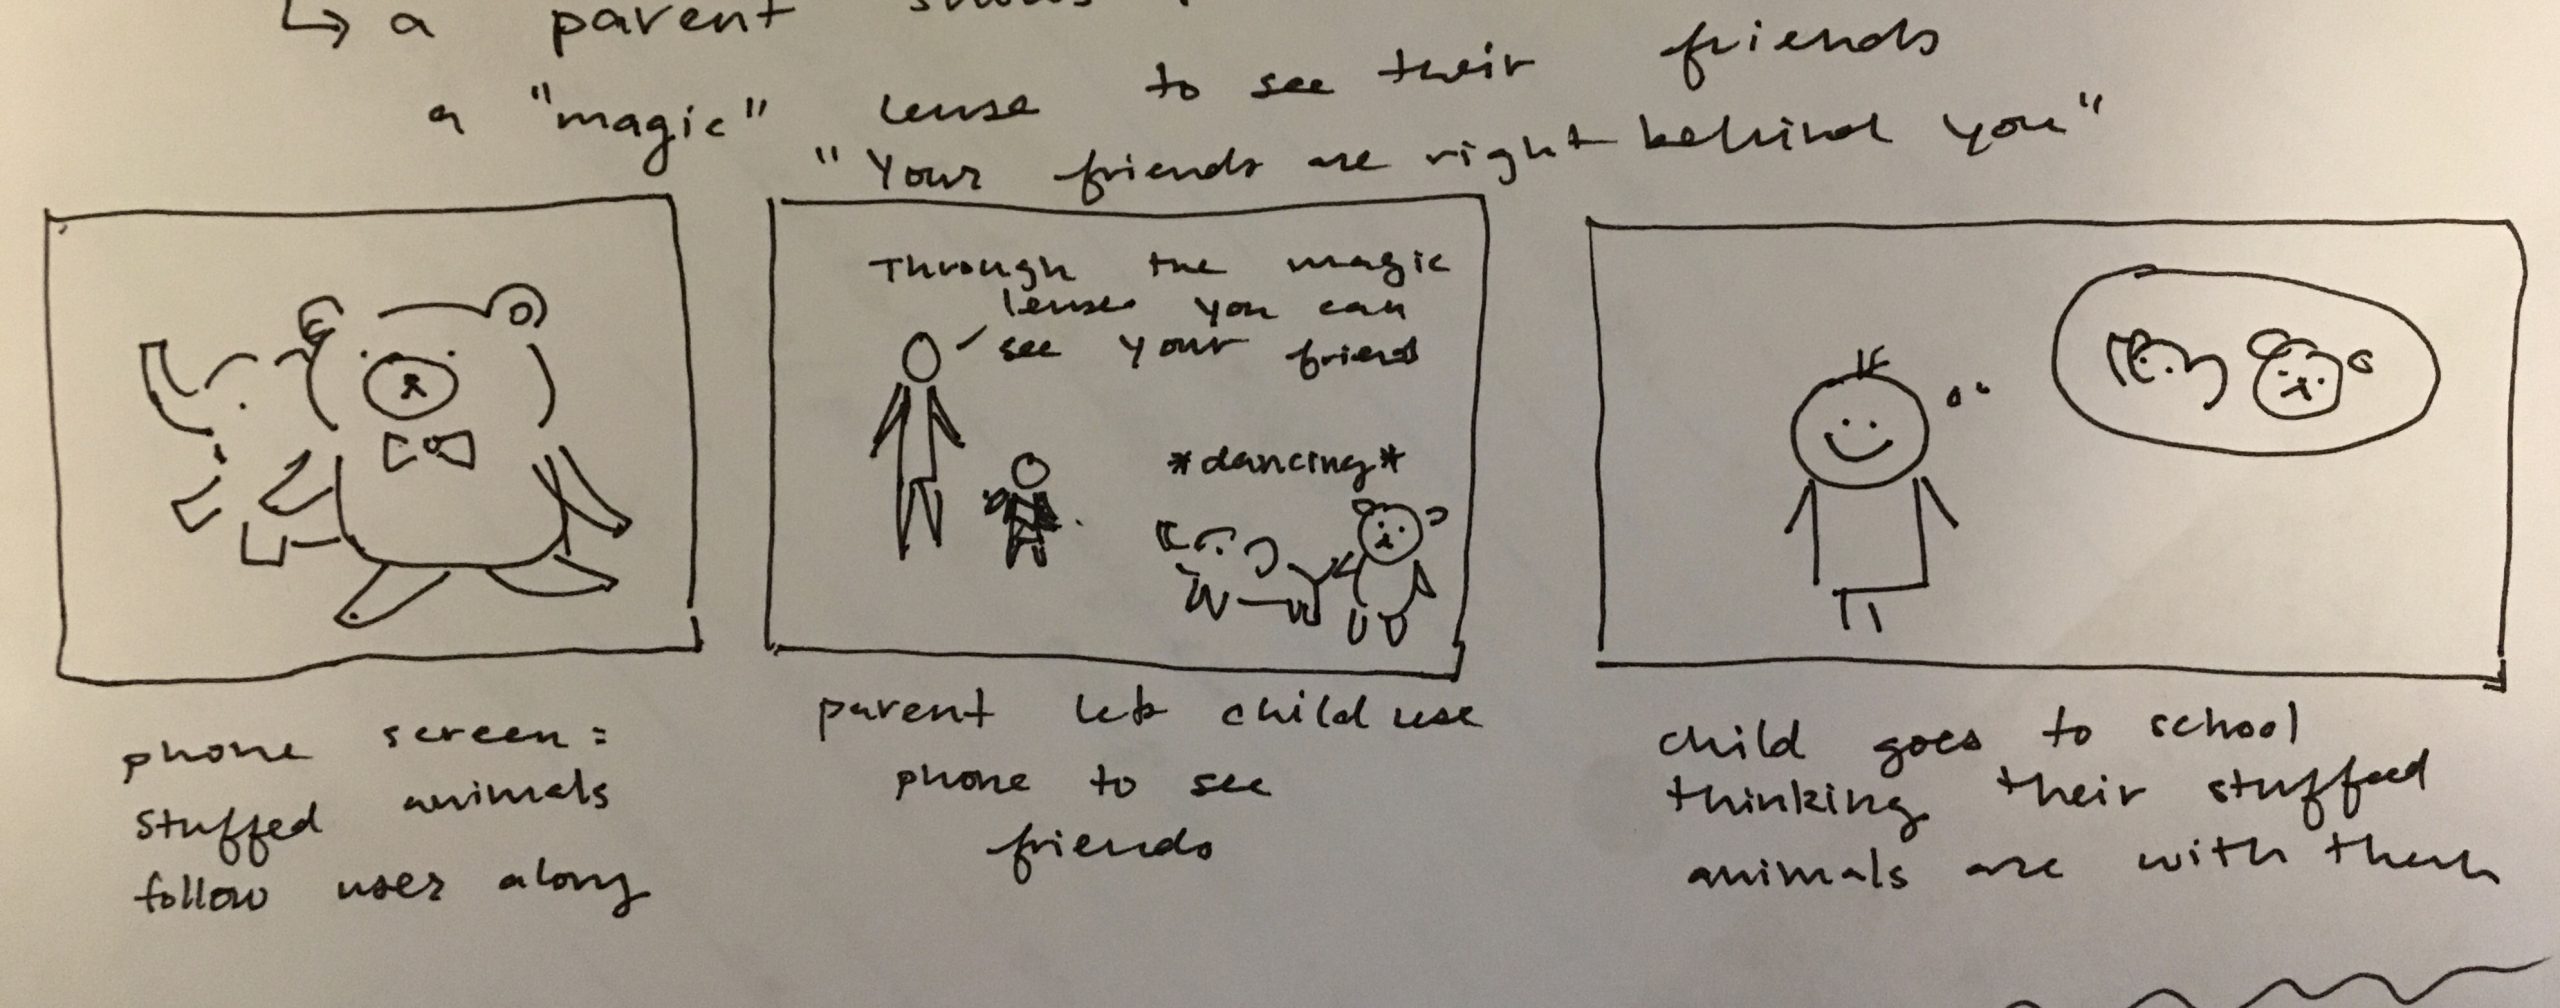 ↳ a parent shows
a "magic" lense to see their friends
"Your friends are right behind you"
Through the magic
lense you can
see your friend
*dancing*
phone screen:
stuffed animals
follow user along
parent lets child use
phone to see
friends
child goes to school
thinking their stuffed
animals are with them